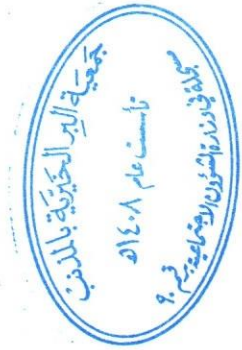 جمعية البر الخيرية بالمذنب
تأسست عام ١٤٠٨هـ
مسجلة في وزارة الشؤون الاجتماعية برقم ٩٠